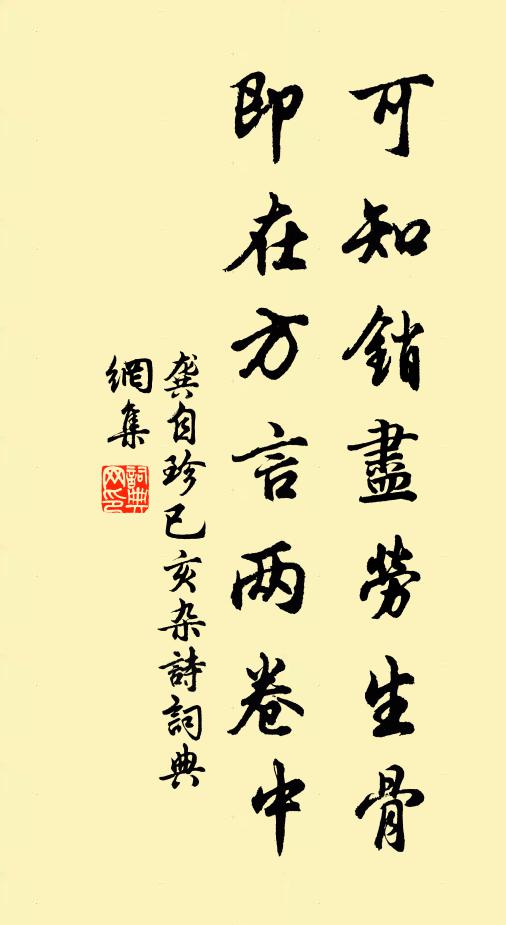 可知銷盡勞生骨
即在方言两卷中
龔自珍已亥杂詩詞典
網集
詞典
网印